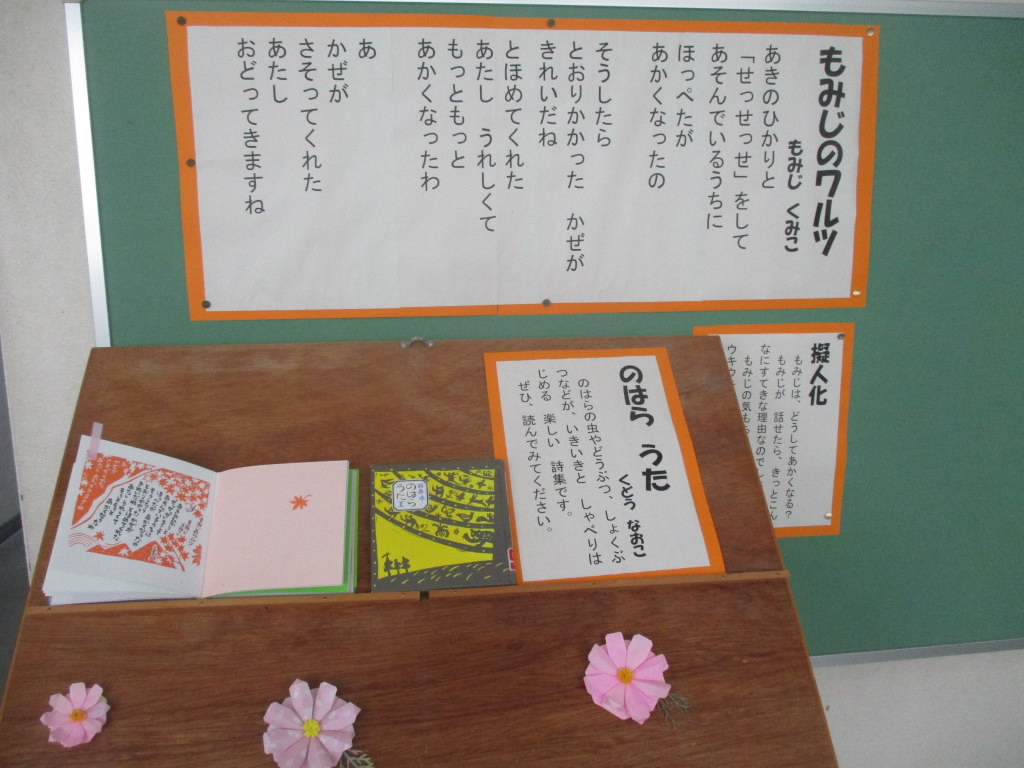 もみじのワルツ
もみじ くみこ
あきのひかりと
「せっせっせ」をして
あそんでいるうちに
ほっぺたが
あかくなったの
そうしたら
とおりかかった かぜが
きれいだね
とほめてくれた
あたし うれしくて
もっともっと
あかくなったわ
あ
かぜが
さそってくれた
あたし
おどってきますね
擬人化
もみじは、どうしてあかくなる?
もみじが 話せたら、きっとこん
なにすてきな理由なので
もみじの気も
ウキウ
のはら うた
くどう なおこ
のはらの虫やどうぶつ、しょくぶ
つなどが、いきいきと しゃべりは
じめる 楽しい 詩集です。
ぜひ、読んでみてください。
のはら
うた